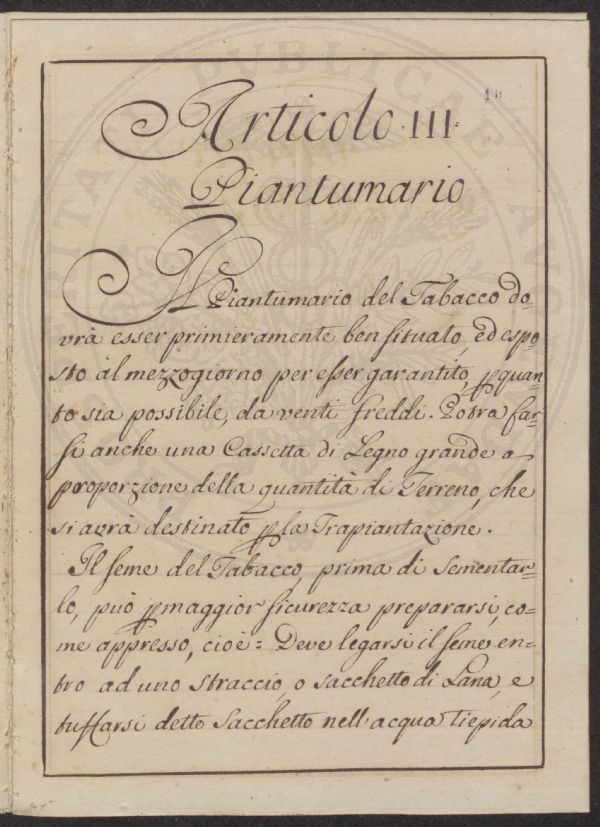 10
Articolo III.
Piantumario
Il Piantumario del Tabacco do-
vrà esser primieramente ben situato, ed espo-
sto al mezzogiorno per esser garantito, p quan-
to sia possibile, da venti freddi. Potra far-
si anche una Cassetta di Legno grande a
proporzione della quantità di Terreno, che
si avrà destinato p la Trapiantazione.
Il seme del Tabacco, prima di sementar-
lo, può p maggior sicurezza prepararsi, co-
me appresso, cioè: Deve legarsi il seme en-
tro ad uno straccio, o sacchetto di Lana, e
tuffarsi detto Sacchetto nell'acqua tiepida
PUBLICAE